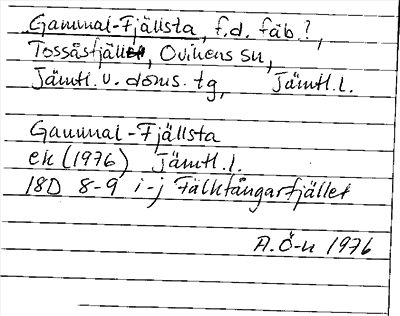 Gammal-Fjällsta, f.d. fäb.?,
Tossåsfjället, Ovikens sn,
Jämtl. v. doms. tg, Jämtl. l.
Gammal-Fjällsta
ek (1976) Jämtl. l.
18D 8-9 i-j Fälkfångarfjället
A. Ö-n 1976